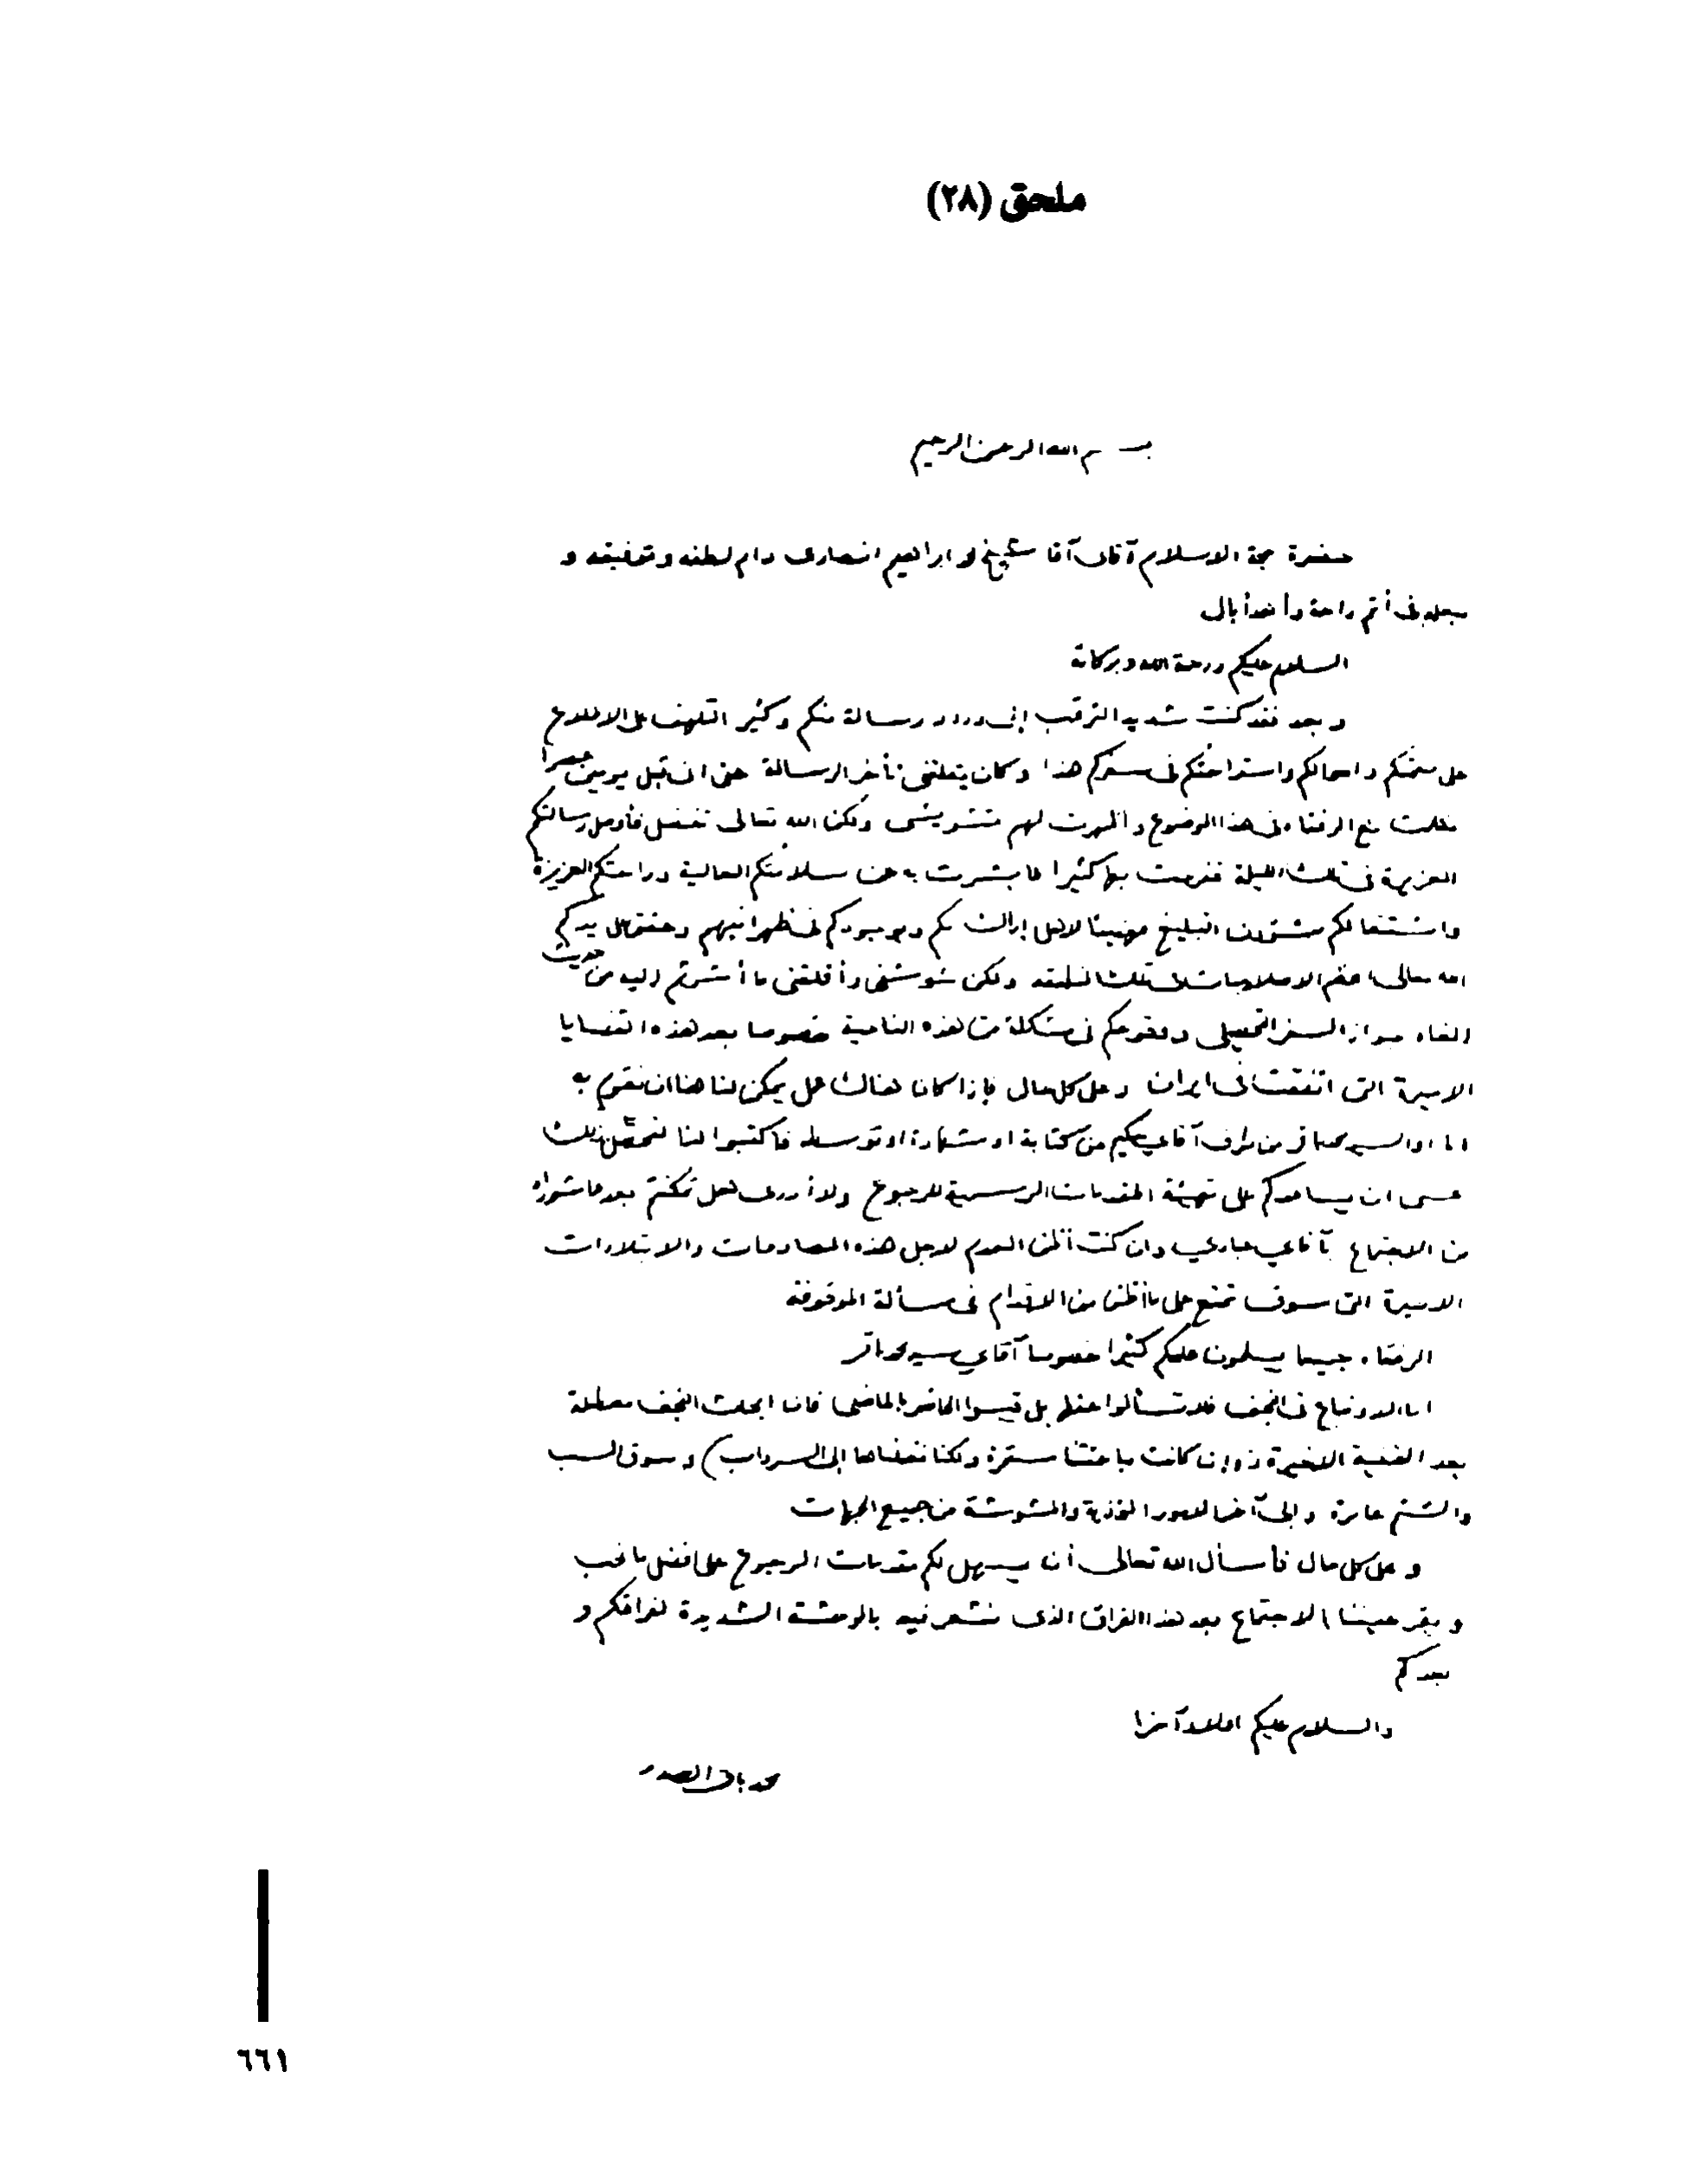 ملحق (٢٨)
بسم الله الرحمن الرحيم
حضرة حجة الاسلام آقاى آقا شيخ محمد ابراهيم انصارى دام لطفه وتوفيقه و
جعله فى أتم راحة وأهدأ بال
السلام عليكم ورحمة الله وبركاته
وبعد فقد كنت شديد الترقب إلى ورود رسالة منكم وكثير التلهف على الاطلاع
على صحتكم واحوالكم واستراحتكم فى سفركم هذا وكان يقلقنى تأخر الرسالة حتى انى قبل يومين عصرا
تكلمت مع الرفقاء فى هذا الموضوع واظهرت لهم تشويشى ولكن الله تعالى تفضل فأوصل رسالتكم
العزيزة فى تلك الليلة ففرحت بها كثيرا لما بشرت به من سلامتكم الغالية وراحتكم العزيزة
واشتغالكم بشؤون التبليغ فهنيئا لاهل اراك بكم وبوجودكم فى ظهرانيهم وحقق على يدكم
الله تعالى اعظم الاصلاحات فى تلك المنطقة ولكن شوشنى وأقلقنى ما أشرتم إليه من حديث
الغاء جواز السفر التحصيلى ووقوعكم فى مشكلة من هذه الناحية خصوصا بعد هذه القضايا
الاخيرة التى اتفقت فى ايران وعلى كل حال فإذا كان هناك عمل يمكن لنا هنا ان نقوم به
انا او السيد محمد باقر من طرف آقاي حكيم من كتابة او شهادة او توسط فاكتبوا لنا لنحصل ذلك
عسى ان يساعدكم على تهيئة المقدمات الرسمية للرجوع ولا أدرى هل تمكنتم بعد عاشوراء
من الاجتماع بآقاي وان كنت أظن العدم لاجل هذه المصادمات والابتلاءات
الاخيرة التى سوف تمنع على ما اظن من الاقدام فى مسألة الموقوفة
الرفقاء جميعا يسلمون عليكم كثيرا خصوصا آقاي سيد محمد باقر
اما الاوضاع فى النجف فلا تسألوا عنها بل قيسوا الحاضر بالماضى فان ابحاث النجف معطلة
بعد القضية الاخيرة (وإن كانت باحثتنا مستمرة ولكنا نقلناها إلى السرداب) وسوق السب
والشتم عامرة وإلى آخر الامور المؤذية والمشوشة من جميع الجهات
وعلى كل حال فأسأل الله تعالى أن يسهل لكم مقدمات الرجوع على افضل ما نحب
ويقر عيننا بالاجتماع بعد هذا الفراق الذى نشعر فيه بالوحشة الشديدة لفراقكم و
بعدكم
والسلام عليكم اولا وآخرا
محمد باقر الصدر
٦٦١